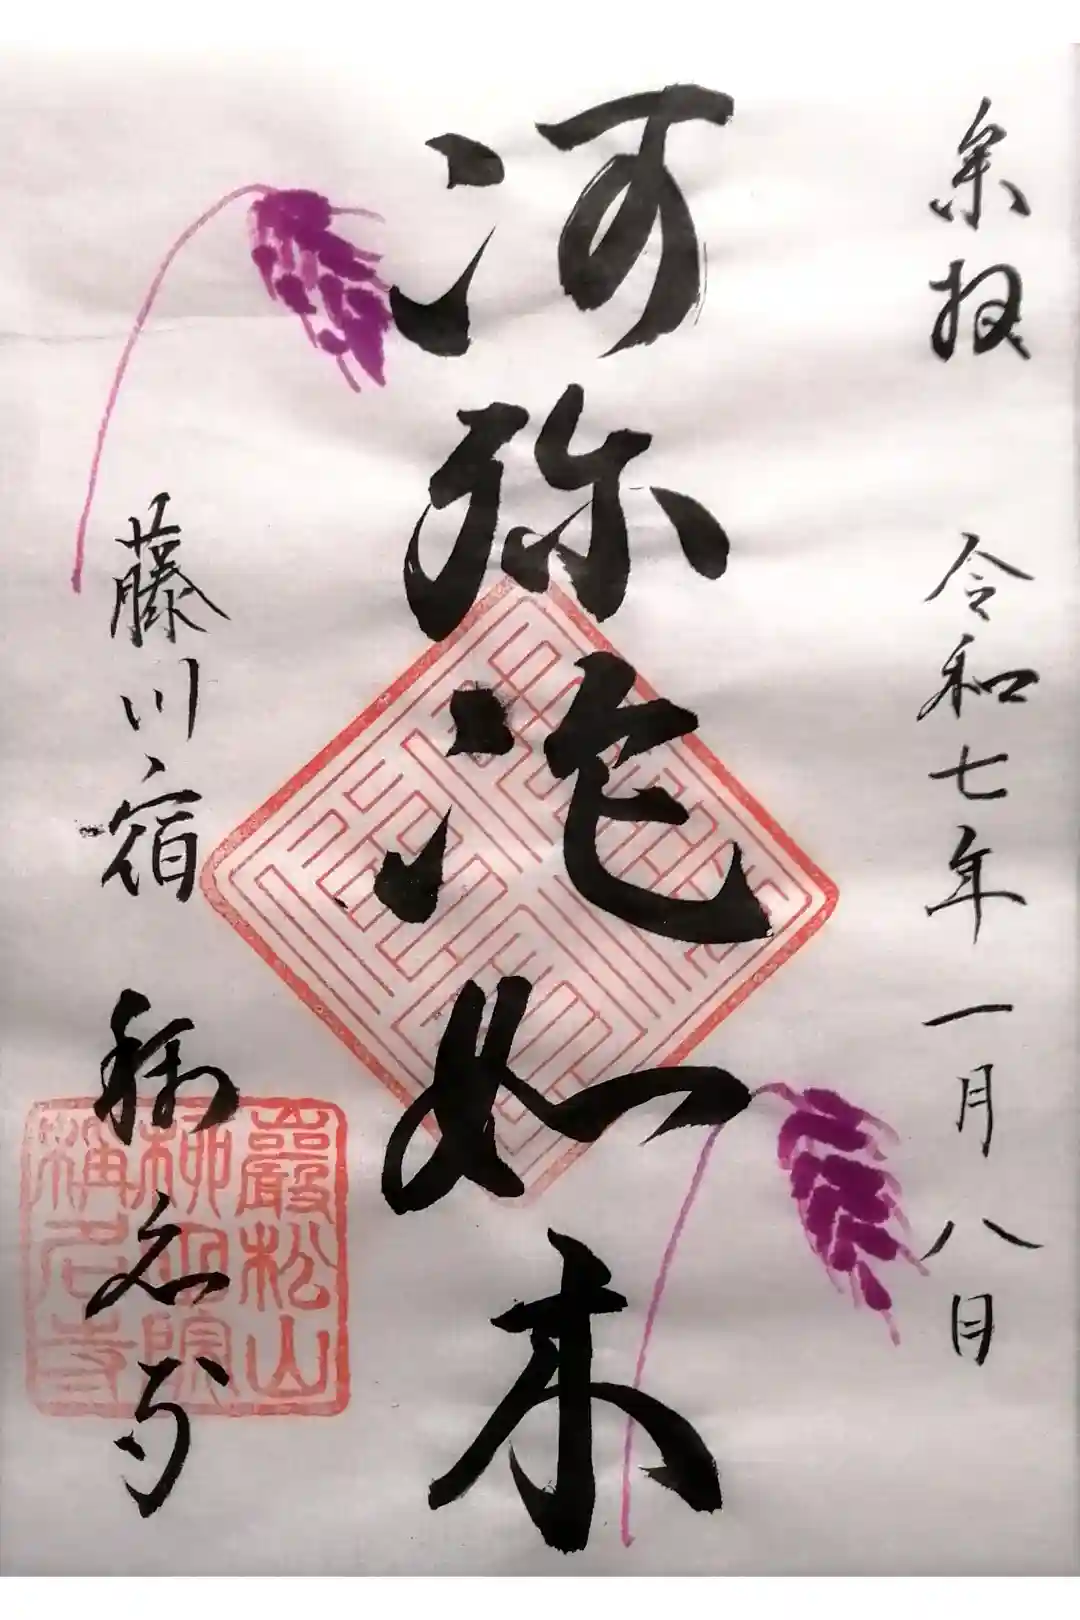 奉拝 令和七年一月八日
阿弥陀如来
藤川宿 称名寺
巖松山
院
稱名寺